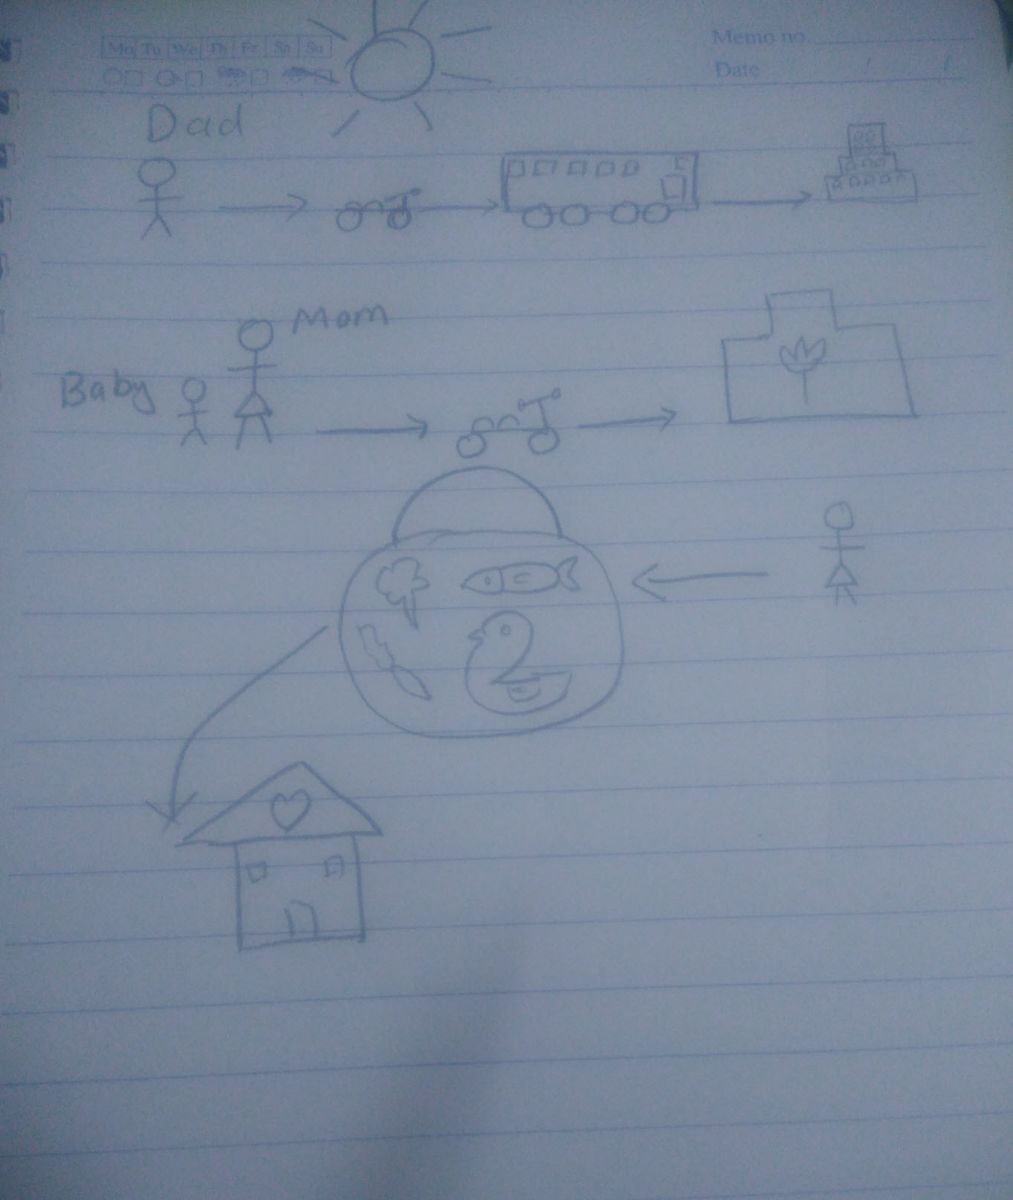 Mo Tu We Th Fr Sa Su
Memo no.
Date / /
Dad
Mom
Baby